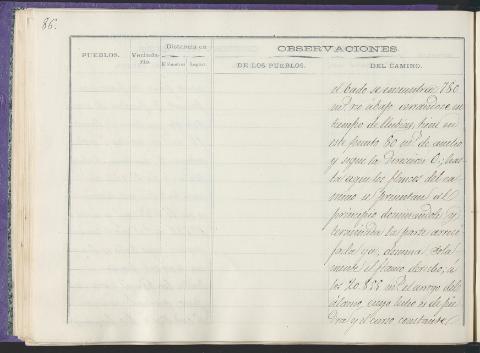 86.
PUEBLOS.
Vecinda-
rio.
Distancia en
Kilómetros
Leguas.
OBSERVACIONES
DE LOS PUEBLOS.
DEL CAMINO.
el vado se encuentra 780
m.s rio abajo variandose en
tiempo de lluvias; tiene en
este punto 60 m.s de ancho
y sigue la direccion O.; has
ta aqui los flancos del ca
mino se presentan al
principio dominandole y
terminada la parte
domina sola
mente el flanco derecho; á
los 20.855 m.s el arroyo del
álamo, cuyo lecho es de pie
dra y el curso constante